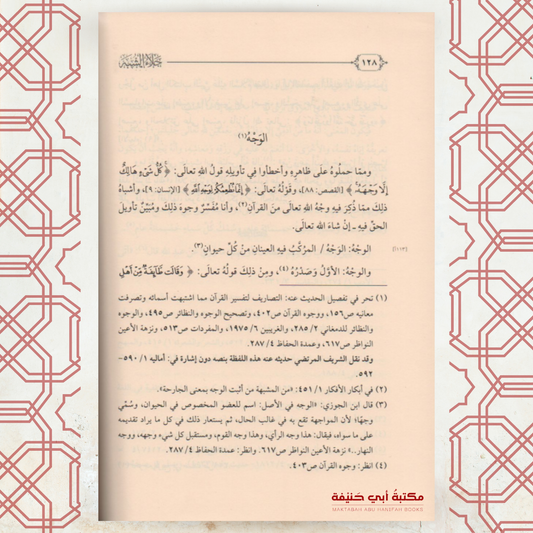 ١٢٨
الوَجْهُ(١)
وممّا حملُوهُ علَى ظاهرِهِ وأخطأوا فِي تأويلِهِ قولُ اللهِ تعالَى: ﴿كُلُّ شَيْءٍ هَالِكٌ
إِلَّا وَجْهَهُ﴾ [القصص: ٨٨]، وقَوْلُهُ تعالَى: ﴿إِنَّمَا نُطْعِمُكُمْ لِوَجْهِ اللَّهِ﴾ [الإنسان: ٩]، وأشباهُ
ذلِكَ ممّا ذُكِرَ فيهِ وجْهُ اللهِ تعالَى منَ القرآنِ(٢)، وأنا مُفَسِّرٌ وجوهَ ذلِكَ ومُبَيِّنٌ تأويلَ
الحقِّ فيهِ ـ إنْ شاءَ اللهُ تعالَى.
الوجْهُ: الوَجْهُ / المركَّبُ فيهِ العينانِ منْ كُلِّ حيوانٍ(٣).
والوجْهُ: الأوَّلُ وَصَدْرُهُ(٤)، ومِنْ ذلِكَ قولُهُ تعالَى: ﴿وَقَالَت طَّائِفَةٌ مِّنْ أَهْلِ
(١) تحر في تفصيل الحديث عنه: التصاريف لتفسير القرآن مما اشتبهت أسمائه وتصرفت
معانيه ص١٥٦، ووجوه القرآن ص٤٠٢، وتصحيح الوجوه والنظائر ص٤٩٥، والوجوه
والنظائر للدمغاني ٢/ ٢٨٥، والغريبين ٦/ ١٩٧٥، والمفردات ص٥١٣، ونزهة الأعين
النواظر ص٦١٧، وعمدة الحفاظ ٤/ ٢٨٧.
وقد نقل الشريف المرتضي حديثه عنه هذه اللفظة بنصه دون إشارة في: أماليه ١/ ٥٩٠ –
٥٩٢.
(٢) في أبكار الأفكار ١/ ٤٥١: «من المشبهة من أثبت الوجه بمعنى الجارحة».
(٣) قال ابن الجوزي: «الوجه في الأصل: اسم للعضو المخصوص في الحيوان، وسُمِّي
وجهًا؛ لأن المواجهة تقع به في غالب الحال، ثم يستعار ذلك في كل ما يراد تقديمه
على ما سواه، فيقال: هذا وجه الرأي، وهذا وجه القوم، ومستقبل كل شيء وجهه، ووجه
النهار..» نزهة الأعين النواظر ص٦١٧. وانظر: عمدة الحفاظ ٤/ ٢٨٧.
(٤) انظر: وجوه القرآن ص٤٠٣.
مكتبة أبي حنيفة
MAKTABAH ABU HANIFAH BOOKS